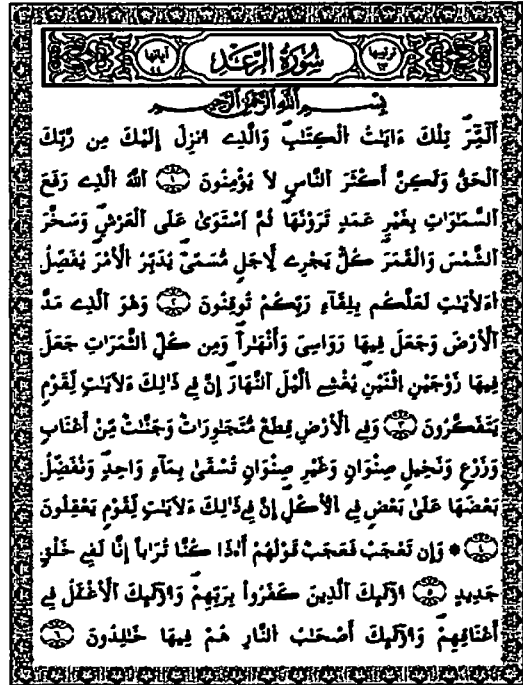 ترتيبها ١٣ سُورَةُ الرَّعْدِ آياتها ٤٤
بِسْمِ اِللَّهِ اِلرَّحْمَٰنِ اِلرَّحِيمِ
أَلَٓمِّٓرۖ تِلْكَ ءَايَٰتُ اُ۬لْكِتَٰبِۖ وَالَّذِےٓ أُنزِلَ إِلَيْكَ مِن رَّبِّكَ
اَ۬لْحَقُّ وَلَٰكِنَّ أَكْثَرَ اَ۬لنَّاسِ لَا يُؤْمِنُونَ ١ اَ۬للَّهُ اُ۬لَّذِے رَفَعَ
اَ۬لسَّمَٰوَٰتِ بِغَيْرِ عَمَدٍ تَرَوْنَهَا ثُمَّ اَ۪سْتَوَىٰ عَلَى اَ۬لْعَرْشِۖ وَسَخَّرَ
اَ۬لشَّمْسَ وَالْقَمَرَۖ كُلٌّ يَجْرِے لِأَجَلٍ مُّسَمّىٗۖ يُدَبِّرُ اُ۬لْأَمْرَ يُفَصِّلُ
اُ۬لْأٓيَٰتِ لَعَلَّكُم بِلِقَآءِ رَبِّكُمْ تُوقِنُونَ ٢ وَهُوَ اَ۬لَّذِے مَدَّ
اَ۬لْأَرْضَ وَجَعَلَ فِيهَا رَوَٰسِيَ وَأَنْهَٰراٗۖ وَمِن كُلِّ اِ۬لثَّمَرَٰتِ جَعَلَ
فِيهَا زَوْجَيْنِ اِ۪ثْنَيْنِۖ يُغْشِے اِ۬ليْلَ اَ۬لنَّهَارَۖ إِنَّ فِے ذَٰلِكَ ءَلأيَٰتٖ لِّقَوْمٖ
يَتَفَكَّرُونَ ٣ وَفِے اِ۬لْأَرْضِ قِطَعٞ مُّتَجَٰوِرَٰتٞ وَجَنَّٰتٞ مِّنْ أَعْنَٰبٖ
وَزَرْعٖ وَنَخِيلٖ صِنْوَانٖ وَغَيْرِ صِنْوَانٖ تُسْقَىٰ بِمَآءٖ وَٰحِدٖۖ وَنُفَضِّلُ
بَعْضَهَا عَلَىٰ بَعْضٖ فِے اِ۬لْأُكْلِۖ إِنَّ فِے ذَٰلِكَ ءَلأيَٰتٖ لِّقَوْمٖ يَعْقِلُونَ
٤ * وَإِن تَعْجَبْ فَعَجَبٞ قَوْلُهُمْ أَ.ذَا كُنَّا تُرَٰباً إِنَّا لَفِے خَلْقٖ
جَدِيدٍ ٥ أُوْلَٰٓئِكَ اَ۬لَّذِينَ كَفَرُواْ بِرَبِّهِمْۖ وَأُوْلَٰٓئِكَ اَ۬لْأَغْلَٰلُ فِےٓ
أَعْنَاقِهِمْۖ وَأُوْلَٰٓئِكَ أَصْحَٰبُ اُ۬لنَّارِ هُمْ فِيهَا خَٰلِدُونَ ٦